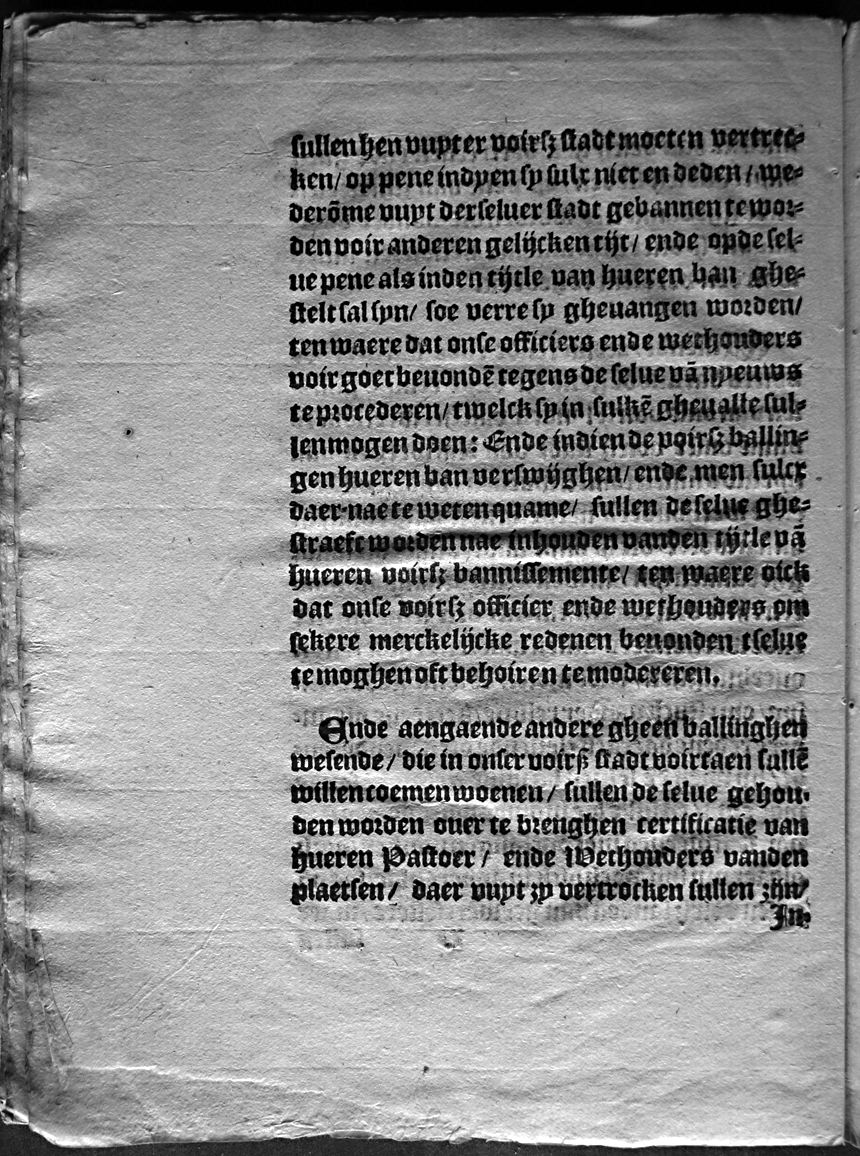 sullen hen vuyter voirsz stadt moeten vertrec-
ken/ op pene indyen sy sulx niet en deden/ we-
derōme vuyt der seluer stadt gebannen te wor-
den voir anderen gelijcken tijt/ ende opde sel-
ue pene als inden tijtle van hueren ban ghe-
stelt sal syn/ soe verre sy gheuangen worden/
ten waere dat onse officiers ende wethouders
voir goet beuondē tegens de selue vā nyeuws
te procederen/ twelck sy in sulkē gheualle sul-
len mogen doen: Ende indien de voirsz ballin-
gen hueren ban verswijghen/ ende men sulcx
daer-nae te weten quame/ sullen de selue ghe-
straeft wordēn nae inhouden vanden tijtle vā
hueren voirsz bannissemente/ ten waere oick
dat onse voirsz officier ende wethouders om
sekere merckelijcke redenen beuonden tselue
te moghen oft behoiren te modereren.
Ende aengaende andere gheen ballinghen
wesende/ die in onser voirß stadt voirtaen sullē
willen coemen woenen/ sullen de selue gehou-
den worden ouer te brenghen certificatie van
hueren Pastoer/ ende Wethouders vanden
plaetsen/ daer vuyt zy vertrocken sullen zijn/
In-